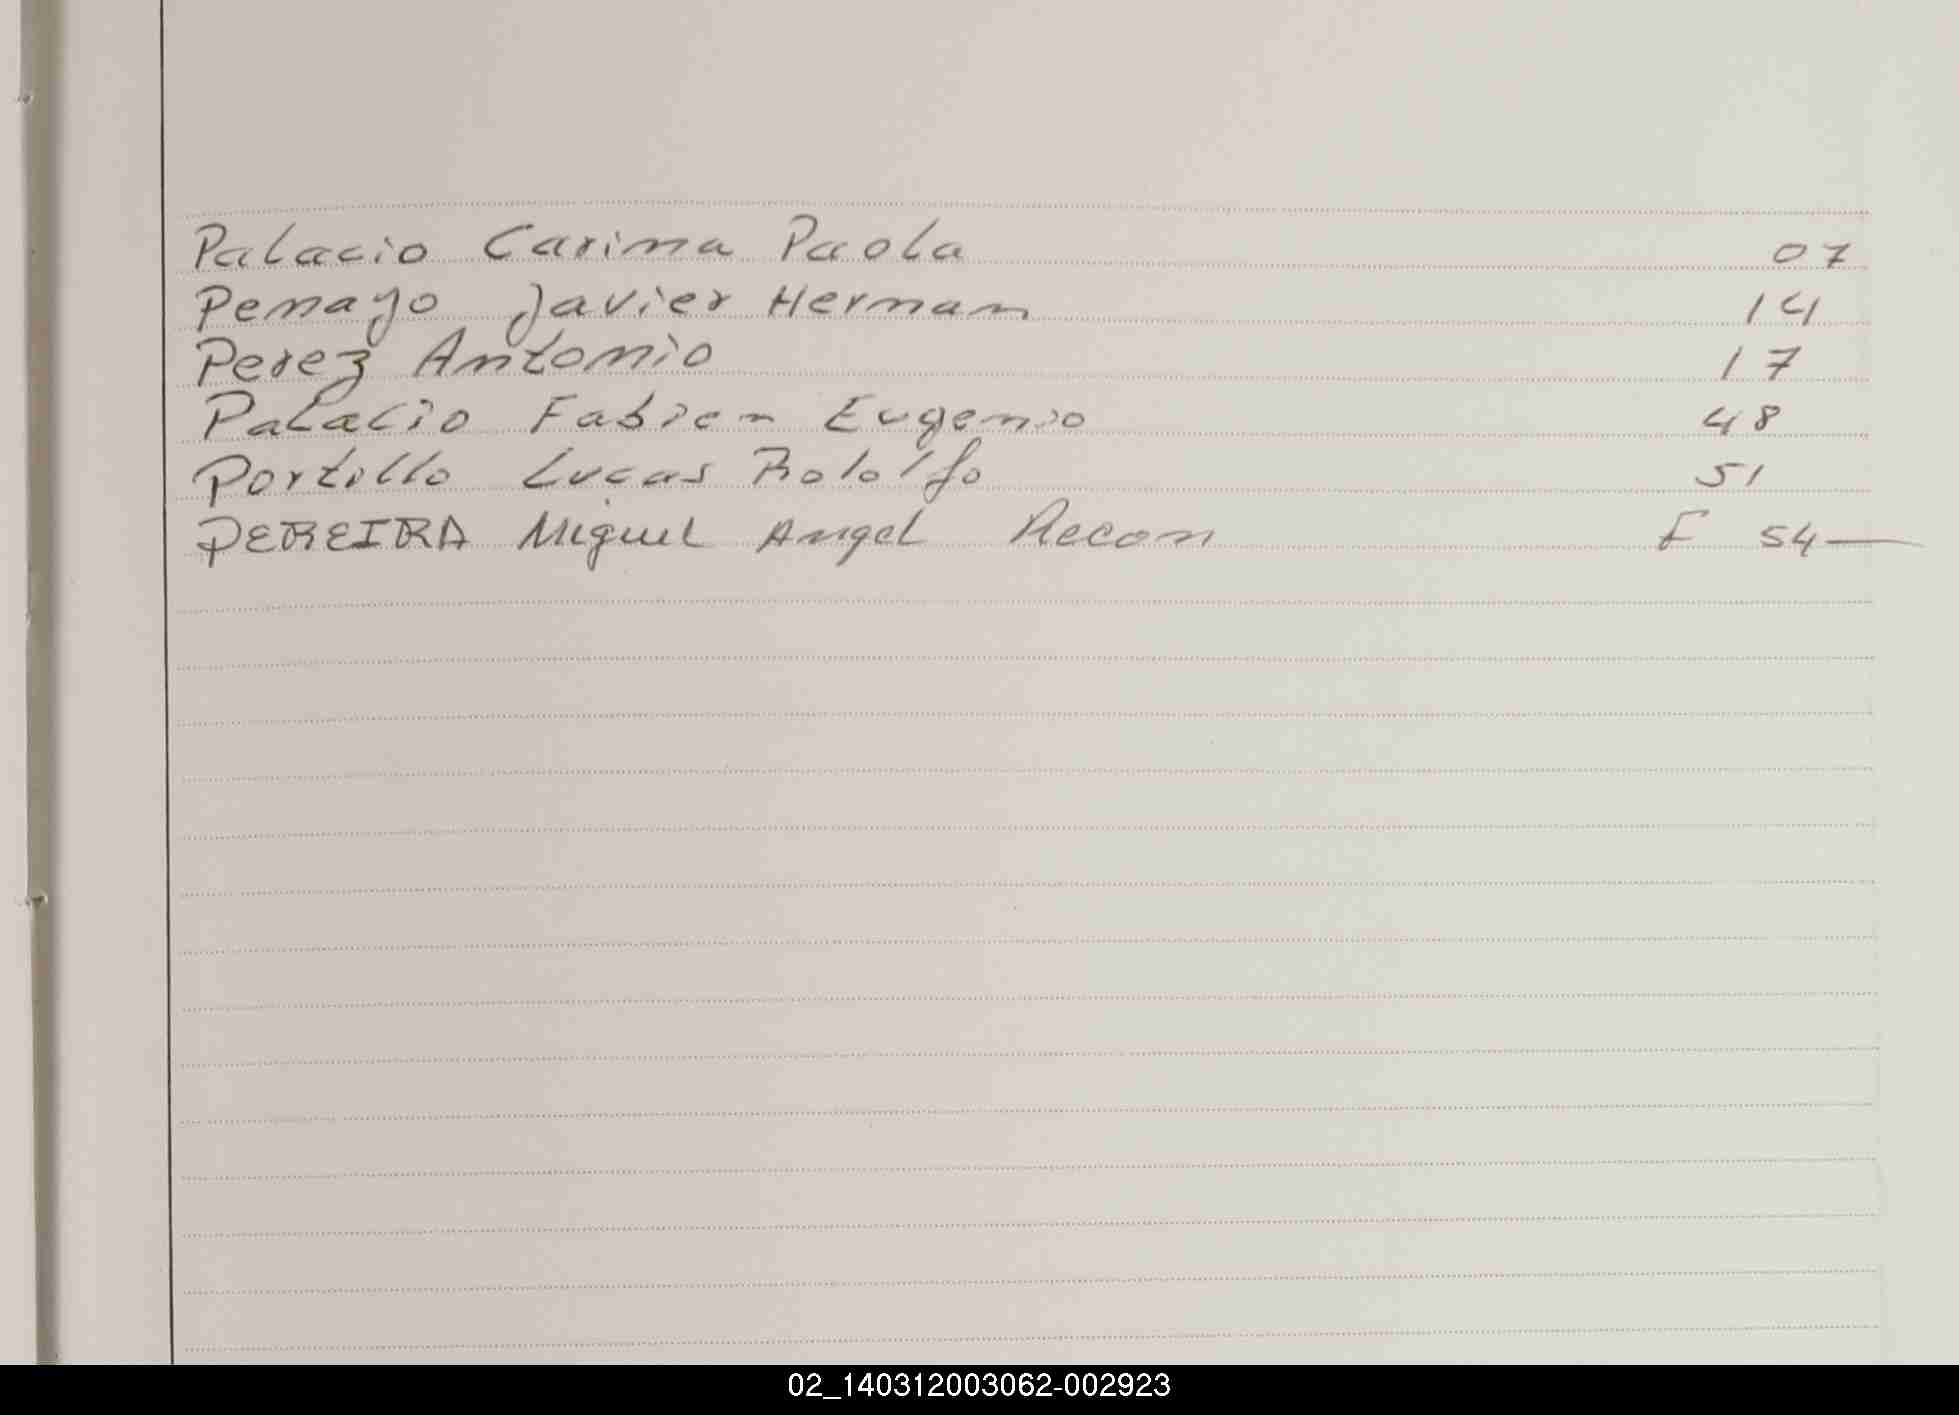 Palacio Carina Paola 07
Penayo Javier Hernan 14
Perez Antonio 17
Palacio Fabian Eugenio 48
Portillo Lucas Rololfo 51
PEREIRA Miguel Angel Recon F 54
02_140312003062-002923